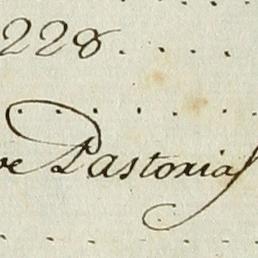 228 . . . .
ve Pastorias